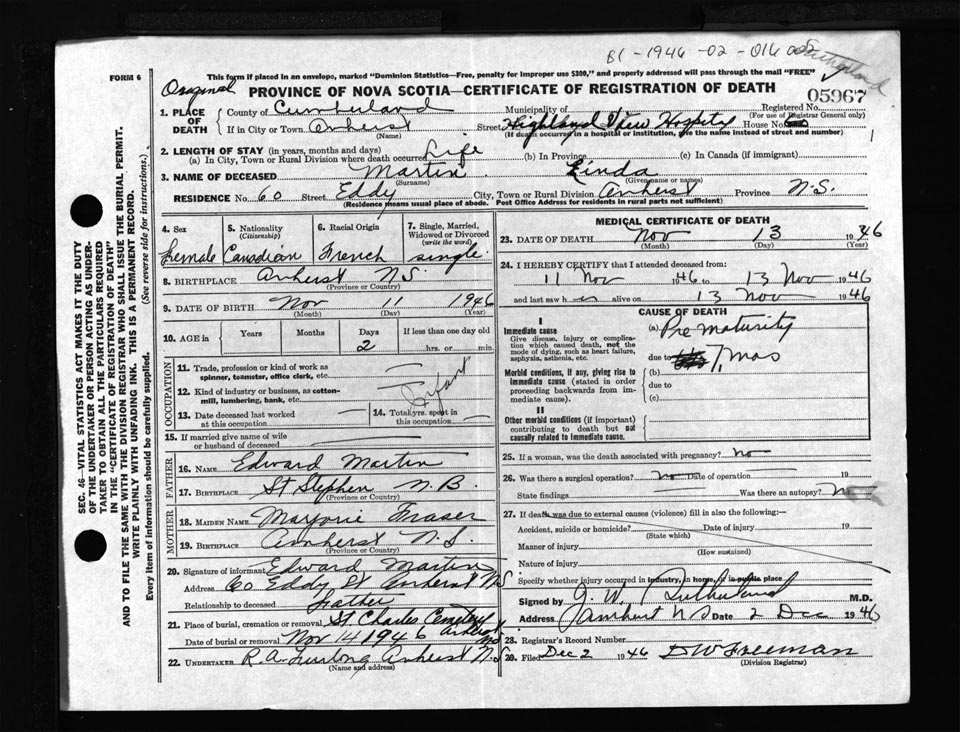 B1-1946-02-016005
Sutherland
FORM 6
This form if placed in an envelope, marked "Dominion Statistics—Free, penalty for improper use $300," and properly addressed will pass through the mail "FREE"
Original
PROVINCE OF NOVA SCOTIA—CERTIFICATE OF REGISTRATION OF DEATH
05967
1. PLACE OF DEATH
County of Cumberland Municipality of Registered No. (For use of Registrar General only)
If in City or Town Amherst (Name) Street Highland View Hospity House No.
(If death occurred in a hospital or institution, give the name instead of street and number)
1
2. LENGTH OF STAY (in years, months and days)
(a) In City, Town or Rural Division where death occurred Life (b) In Province (c) In Canada (if immigrant)
3. NAME OF DECEASED Martin (Surname) Linda (Given name or names)
RESIDENCE No. 60 Street Eddy City, Town or Rural Division Amherst Province N.S.
(Residence means usual place of abode. Post Office Address for residents in rural parts not sufficient)
4. Sex Female
5. Nationality (Citizenship) Canadian
6. Racial Origin French
7. Single, Married, Widowed or Divorced (write the word) single
8. BIRTHPLACE Amherst N.S. (Province or Country)
9. DATE OF BIRTH Nov (Month) 11 (Day) 1946 (Year)
10. AGE in Years Months Days 2 If less than one day old hrs. or min.
OCCUPATION
11. Trade, profession or kind of work as spinner, teamster, office clerk, etc.
12. Kind of industry or business, as cotton-mill, lumbering, bank, etc.
Infant
13. Date deceased last worked at this occupation
14. Total yrs. spent in this occupation
15. If married give name of wife or husband of deceased
FATHER
16. NAME Edward Martin
17. BIRTHPLACE St Stephen N.B. (Province or Country)
MOTHER
18. MAIDEN NAME Marjorie Fraser
19. BIRTHPLACE Amherst N.S. (Province or Country)
20. Signature of informant Edward Martin
Address 60 Eddy St Amherst NS
Relationship to deceased Father
21. Place of burial, cremation or removal St. Charles Cemetery Amherst NS
Date of burial or removal Nov 14 1946
22. UNDERTAKER R.A. Furlong Amherst N.S (Name and address)
MEDICAL CERTIFICATE OF DEATH
23. DATE OF DEATH Nov (Month) 13 (Day) 1946 (Year)
24. I HEREBY CERTIFY that I attended deceased from:
11 Nov 1946 to 13 Nov 1946
and last saw h er alive on 13 Nov 1946
CAUSE OF DEATH
I
Immediate cause
Give disease, injury or complication which caused death, not the mode of dying, such as heart failure, asphyxia, asthenia, etc.
(a) Pre maturity
due to 7 mos
Morbid conditions, if any, giving rise to immediate cause (stated in order proceeding backwards from immediate cause).
(b)
due to
(c)
II
Other morbid conditions (if important) contributing to death but not causally related to immediate cause.
25. If a woman, was the death associated with pregnancy? no
26. Was there a surgical operation? no Date of operation 19
State findings Was there an autopsy? no
27. If death was due to external causes (violence) fill in also the following:—
Accident, suicide or homicide? (State which) Date of injury 19
Manner of injury (How sustained)
Nature of injury
Specify whether injury occurred in industry, in home, or in public place
Signed by J. W. Sutherland M.D.
Address Amherst NS Date 2 Dec 1946
28. Registrar's Record Number
29. Filed Dec 2 1946 DW Freeman (Division Registrar)
SEC. 46—VITAL STATISTICS ACT MAKES IT THE DUTY OF THE UNDERTAKER OR PERSON ACTING AS UNDERTAKER TO OBTAIN ALL THE PARTICULARS REQUIRED IN THE "CERTIFICATE OF REGISTRATION OF DEATH" AND TO FILE THE SAME WITH THE DIVISION REGISTRAR WHO SHALL ISSUE THE BURIAL PERMIT.
WRITE PLAINLY WITH UNFADING INK. THIS IS A PERMANENT RECORD.
Every item of information should be carefully supplied. (See reverse side for instructions.)